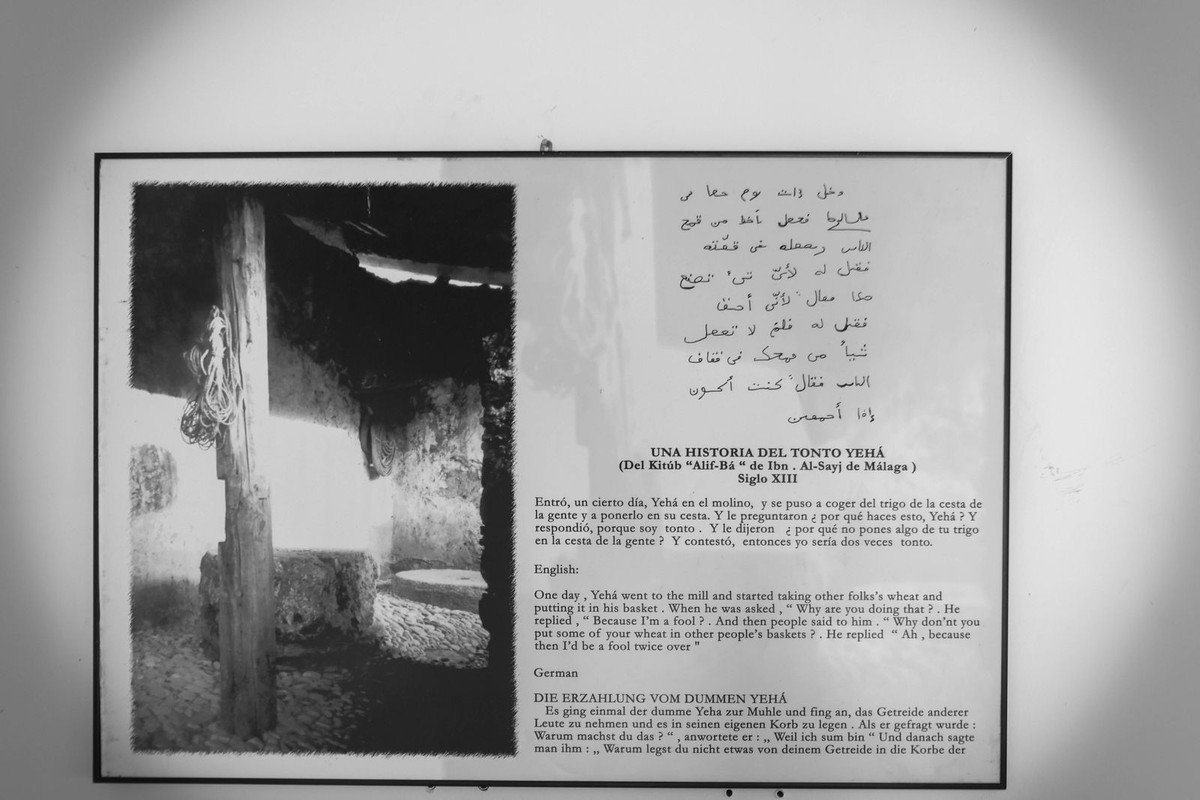 دخل ذات يوم جحا في
فجعل يأخذ من قمح
الناس ويجعله في قفّته
فقيل له لأيّ شيء تصنع
هذا فقال لأنّي أحمق
فقيل له فلم لا تجعل
شيئاً من قمحك في قفاف
الناس فقال كنت أكون
إذا أحمقين
UNA HISTORIA DEL TONTO YEHÁ
(Del Kitúb “Alif-Bá “ de Ibn . Al-Sayj de Málaga )
Siglo XIII
Entró, un cierto día, Yehá en el molino, y se puso a coger del trigo de la cesta de
la gente y a ponerlo en su cesta. Y le preguntaron ¿ por qué haces esto, Yehá ? Y
respondió, porque soy tonto . Y le dijeron ¿ por qué no pones algo de tu trigo
en la cesta de la gente ? Y contestó, entonces yo sería dos veces tonto.
English:
One day , Yehá went to the mill and started taking other folks’s wheat and
putting it in his basket . When he was asked , “ Why are you doing that ? . He
replied , “ Because I’m a fool ? . And then people said to him . “ Why don’nt you
put some of your wheat in other people’s baskets ? . He replied “ Ah , because
then I’d be a fool twice over "
German
DIE ERZAHLUNG VOM DUMMEN YEHÁ
Es ging einmal der dumme Yeha zur Muhle und fing an, das Getreide anderer
Leute zu nehmen und es in seinen eigenen Korb zu legen . Als er gefragt wurde :
Warum machst du das ? “ , anwortete er : „ Weil ich sum bin “ Und danach sagte
man ihm : „ Warum legst du nicht etwas von deinem Getreide in die Korbe der